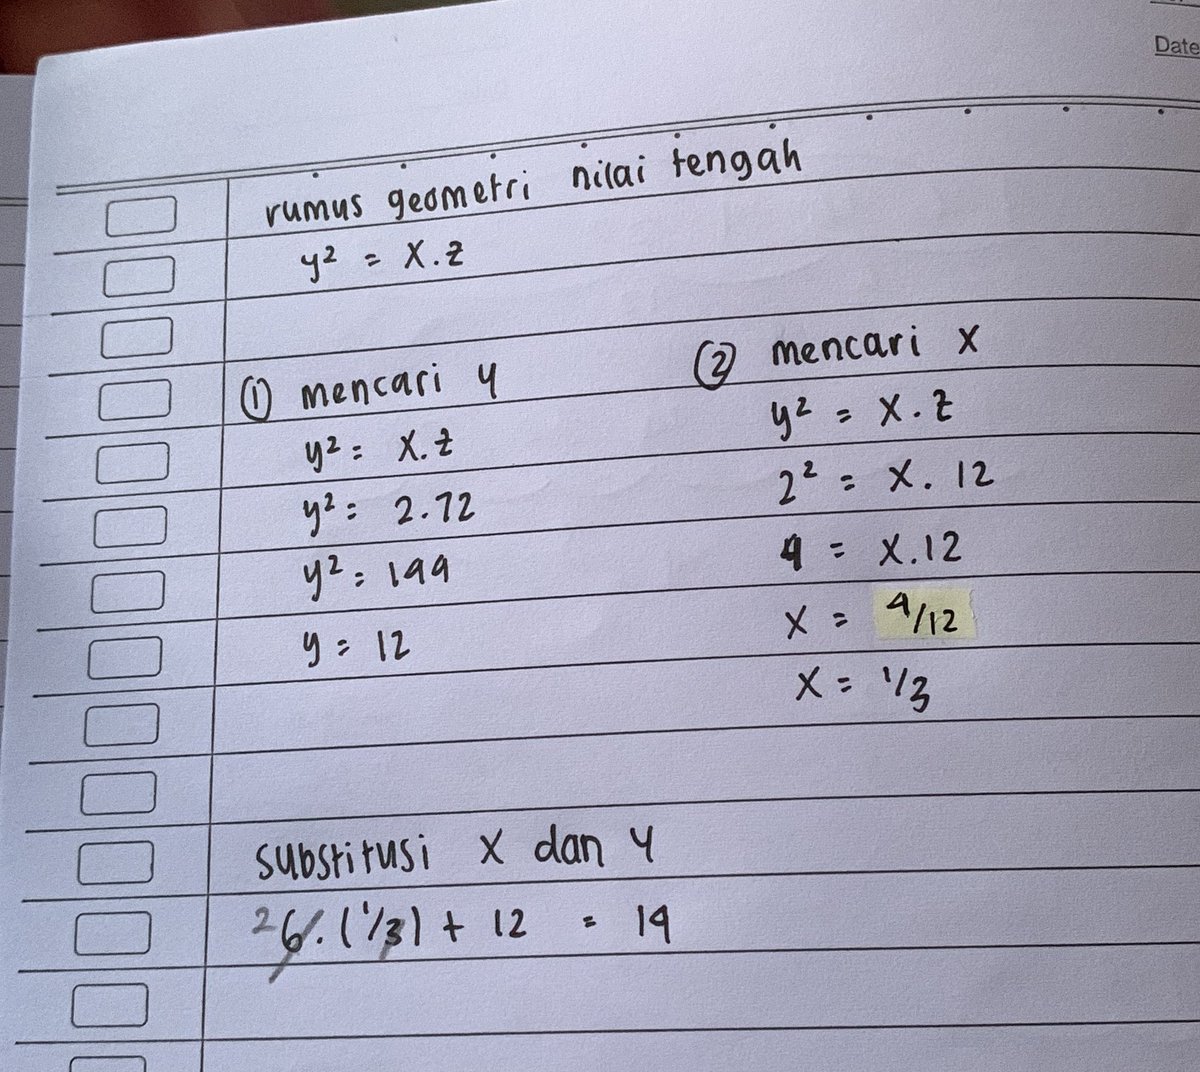 Date
rumus geometri nilai tengah
y² = x.z
① mencari y
y² = x.z
y² = 2.72
y² = 144
y = 12
② mencari x
y² = x.z
2² = x. 12
4 = x.12
x = 4/12
x = 1/3
substitusi x dan y
2 6.(1/3) + 12 = 14